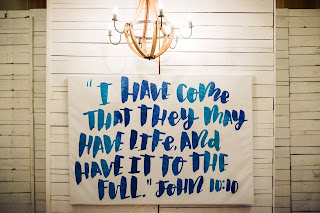 "I HAVE COME
THAT THEY MAY
HAVE LIFE, AND
HAVE IT TO THE
FULL." JOHN 10:10